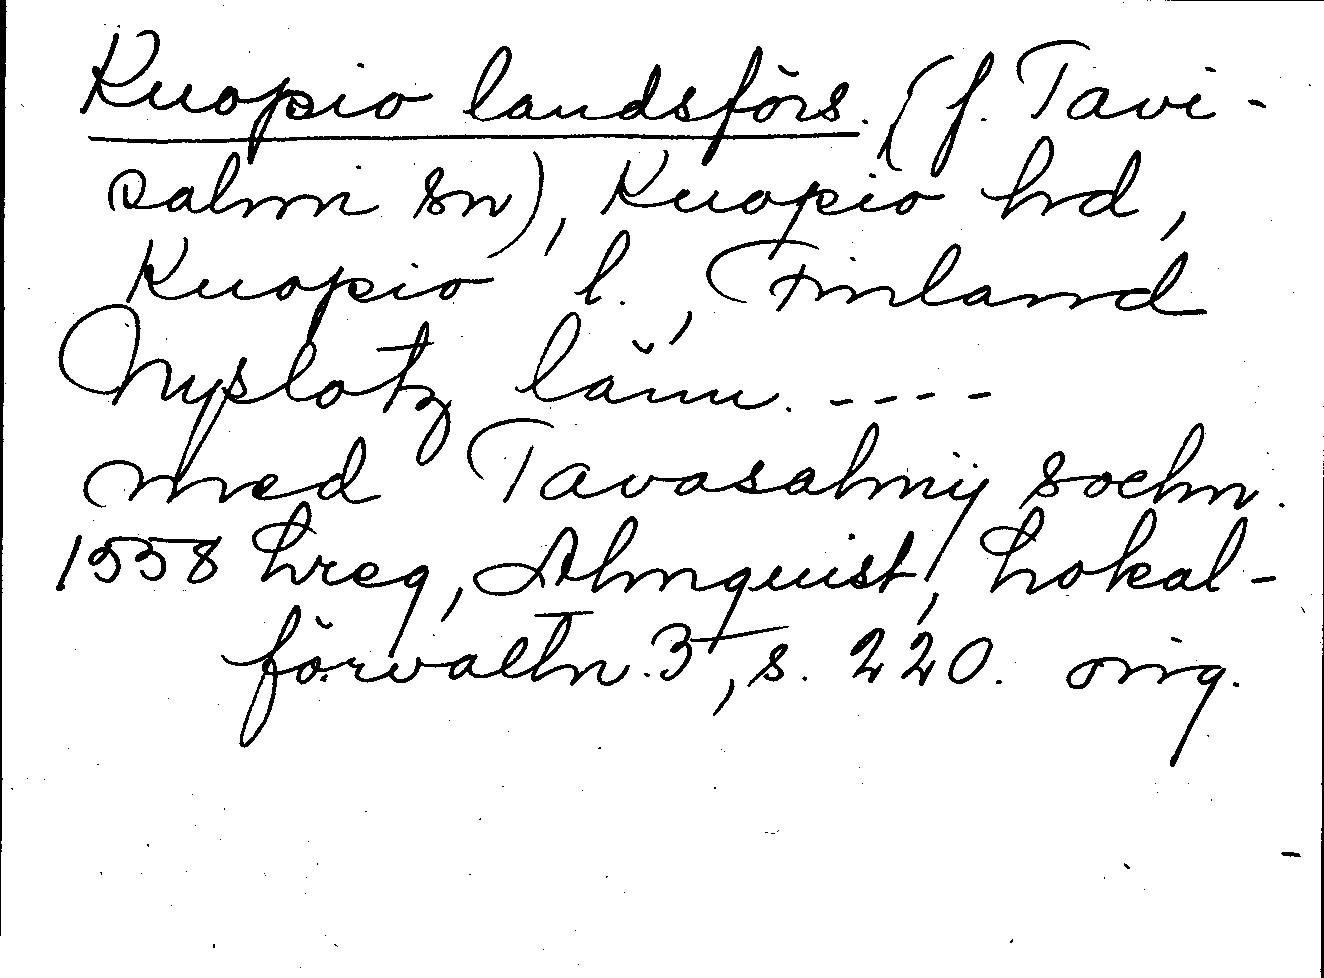 Kuopio landsförs. (f. Tavi-
salmi sn), Kuopio hd,
Kuopio l., Finland
Nyslotz länn. ----
med Tavasalmij sochn.
1558 hreg, Almquist, Lokal-
förvaltn. 3, s. 220. orig.